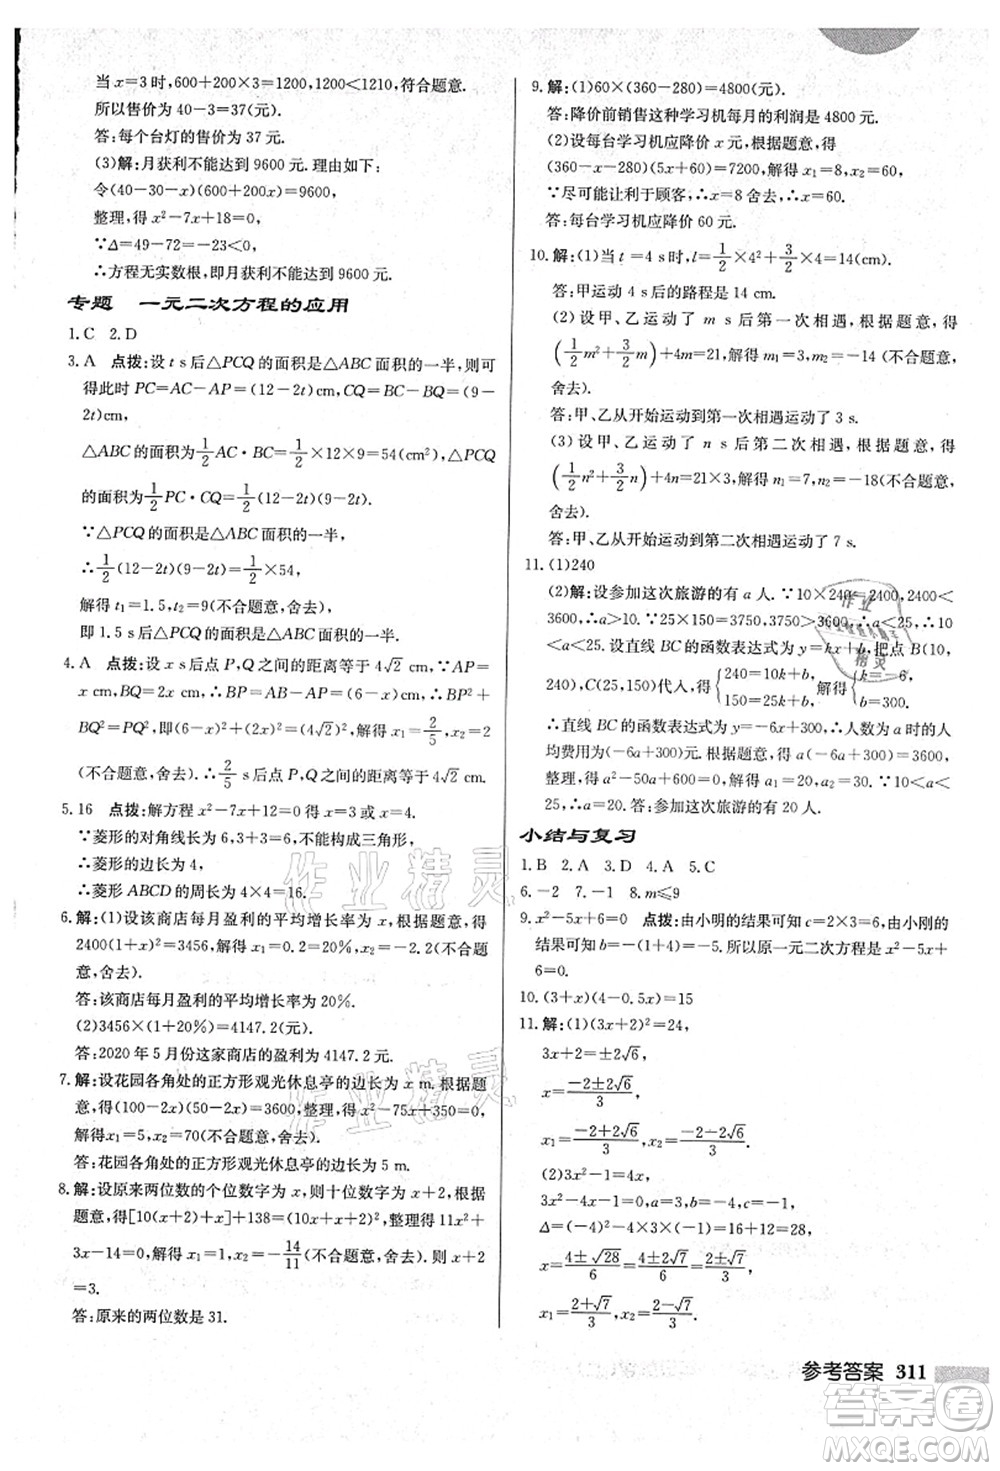 当 x=3 时,600+200×3=1200,1200<1210,符合题意.
所以售价为 40-3=37(元).
答:每个台灯的售价为 37 元.
(3)解:月获利不能达到 9600 元. 理由如下:
令(40-30-x)(600+200x)=9600,
整理,得 x²-7x+18=0,
∵Δ=49-72=-23<0,
∴方程无实数根,即月获利不能达到 9600 元.
专题 一元二次方程的应用
1.C 2.D
3.A 点拨:设 t s后△PCQ 的面积是△ABC 面积的一半,则可
得此时 PC=AC-AP=(12-2t)cm,CQ=BC-BQ=(9-
2t)cm,
△ABC 的面积是1/2AC·BC=1/2×12×9=54(cm²),△PCQ
的面积为1/2PC·CQ=1/2(12-2t)(9-2t).
∵△PCQ 的面积是△ABC 面积的一半,
∴1/2(12-2t)(9-2t)=1/2×54,
解得 t₁=1.5,t₂=9(不合题意,舍去).
即 1.5 s后△PCQ 的面积是△ABC 面积的一半.
4.A 点拨:设 x s后点 P,Q 之间的距离等于 4√2 cm. ∵AP=
x cm,BQ=2x cm,∴BP=AB-AP=(6-x)cm,∴BP²+
BQ²=PQ²,即(6-x)²+(2x)²=(4√2)²,解得 x₁=2/5,x₂=2
(不合题意,舍去).∴2/5 s后点 P,Q 之间的距离等于 4√2 cm.
5.16 点拨:解方程 x²-7x+12=0 得 x=3 或 x=4.
∵菱形的对角线长为 6,3+3=6,不能构成三角形,
∴菱形的边长为 4,
∴菱形 ABCD 的周长为 4×4=16.
6.解:(1)设该商店每月盈利的平均增长率为 x,根据题意,得
2400(1+x)²=3456,解得 x₁=0.2=20%,x₂=-2.2(不合题
意,舍去).
答:该商店每月盈利的平均增长率为 20%.
(2)3456×(1+20%)=4147.2(元).
答:2020 年 5 月份这家商店的盈利为 4147.2 元.
7.解:设花园各角处的正方形观光休息亭的边长为 x m.根据题
意,得(100-2x)(50-2x)=3600,整理,得 x²-75x+350=0,
解得x₁=5,x₂=70(不合题意,舍去).
答:花园各角处的正方形观光休息亭的边长为 5 m.
8.解:设原来两位数的个位数字为 x,则十位数字为 x+2,根据
题意,得[10(x+2)+x]+138=(10x+x+2)²,整理得 11x²+
3x-14=0,解得 x₁=1,x₂=-14/11(不合题意,舍去),∴x+2
=3.
答:原来的两位数是 31.
9.解:(1)60×(360-280)=4800(元).
答:降价前销售这种学习机每月的利润是 4800 元.
(2)设每台学习机应降价 x 元,根据题意,得
(360-x-280)(5x+60)=7200,解得 x₁=8,x₂=60.
∵尽可能让利于顾客,∴x=8 舍去.
答:每台学习机应降价 60 元.
10.解:(1)当 t=4 s时,l=1/2×4²+3/2×4=14(cm).
答:甲运动 4 s后的路程是 14 cm.
(2)设甲、乙运动了 m s后第一次相遇,根据题意,得
(1/2m²+3/2m)+4m=21,解得 m₁=3,m₂=-14(不合题意,
舍去).
答:甲、乙从开始运动到第一次相遇运动了 3 s.
(3)设甲、乙运动了 n s后第二次相遇,根据题意,得
(1/2n²+3/2n)+4n=21×3,解得 n₁=7,n₂=-18(不合题意,
舍去).
答:甲、乙从开始运动到第二次相遇运动了 7 s.
11.(1)240
(2)解:设参加这次旅游的有 a 人.∵10×240=2400,2400<
3600,∴a>10.∵25×150=3750,3750>3600,∴a<25,∴
10<a<25.设直线 BC 的函数表达式为 y=kx+b,把点 B(10,
240),C(25,150)代入,得{240=10k+b,150=25k+b,解得{k=-6,b=300.
∴直线 BC 的函数表达式为 y=-6x+300,∴人数为 a 时的人
均费用为(-6a+300)元,∴a(-6a+300)=3600,
整理,得 a²-50a+600=0,解得 a₁=20,a₂=30.∵10<a<
25,∴a=20.答:参加这次旅游的有 20 人.
小结与复习
1.B 2.A 3.D 4.A 5.C
6.-2 7.-1 8.m≤9
9.x²-5x+6=0 点拨:由小明的结果可知 c=2×3=6,由小刚的
结果可知 b=-(1+4)=-5.所以原一元二次方程是 x²-5x+
6=0.
10.(3+x)(4-0.5x)=15
11.解:(1)(3x+2)²=24,
3x+2=±2√6,
x=(-2±2√6)/3,
x₁=(-2+2√6)/3,x₂=(-2-2√6)/3.
(2)3x²-4x-1=0,
3x²-4x-1=0,a=3,b=-4,c=-1,
Δ=(-4)²-4×3×(-1)=16+12=28,
x=(4±√28)/6=(4±2√7)/6,
x₁=(2+√7)/3,x₂=(2-√7)/3.
参考答案 311
作业精灵
作业精灵
答案圈
MXQE.COM